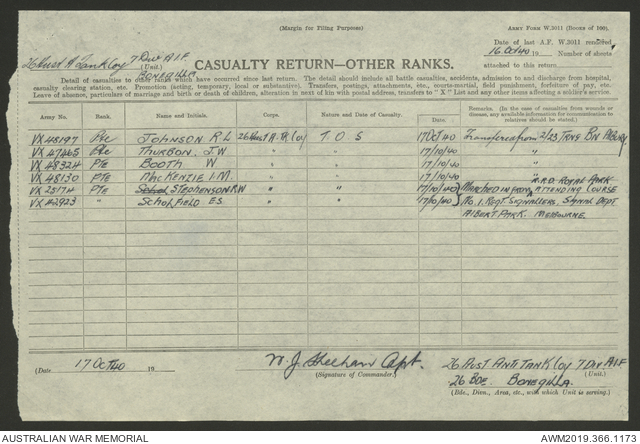 (Margin for Filing Purposes)
ARMY FORM W.3011 (BOOKS OF 100).
26 Aust A Tank Coy 7 Div A.I.F.
(Unit.)
BONEGILLA
Date of last A.F. W.3011 rendered
16 Oct 40 19 Number of sheets
attached to this return
CASUALTY RETURN—OTHER RANKS.
Detail of casualties to other ranks which have occurred since last return. The detail should include all battle casualties, accidents, admission to and discharge from hospital,
casualty clearing station, etc. Promotion (acting, temporary, local or substantive). Transfers, postings, attachments, etc., courts-martial, field punishment, forfeiture of pay, etc.
Leave of absence, particulars of marriage and birth or death of children, alteration in next of kin with postal address, transfers to "X" List and any other items affecting a soldier's service.
Army No. Rank. Name and Initials. Corps. Nature and Date of Casualty. Date Remarks. (In the case of casualties from wounds or disease, any available information for communication to relatives should be stated.)
VX 48197 Pte JOHNSON R L 26 Aust A. Tk Coy T O S 17 Oct 40 Transferred from 2/23 Trng Bn
VX 47465 Pte THURBON. J.W " " 17/10/40 "
VX 48324 Pte BOOTH W " " 17/10/40 "
VX 48130 PTE MACKENZIE I.M. " " 17/10/40 " R.R.D. ROYAL PARK
VX 25174 PTE STEPHENSON R.W " " 17/10/40 MARCHED IN FROM ATTENDING COURSE
VX 42923 " SCHOLFIELD E.S. " " 17/10/40 No. 1. REGT SIGNALLERS. SIGNAL DEPT
ALBERT PARK. MELBOURNE.
(Date 17 Oct 40 19 )
W. J. Sheehan Capt.
(Signature of Commander.)
26 AUST ANTI TANK Coy 7 DIV AIF
(Unit.)
26 BDE. BONEGILLA.
(Bde., Divn., Area, etc., with which Unit is serving.)
AUSTRALIAN WAR MEMORIAL
AWM2019.366.1173